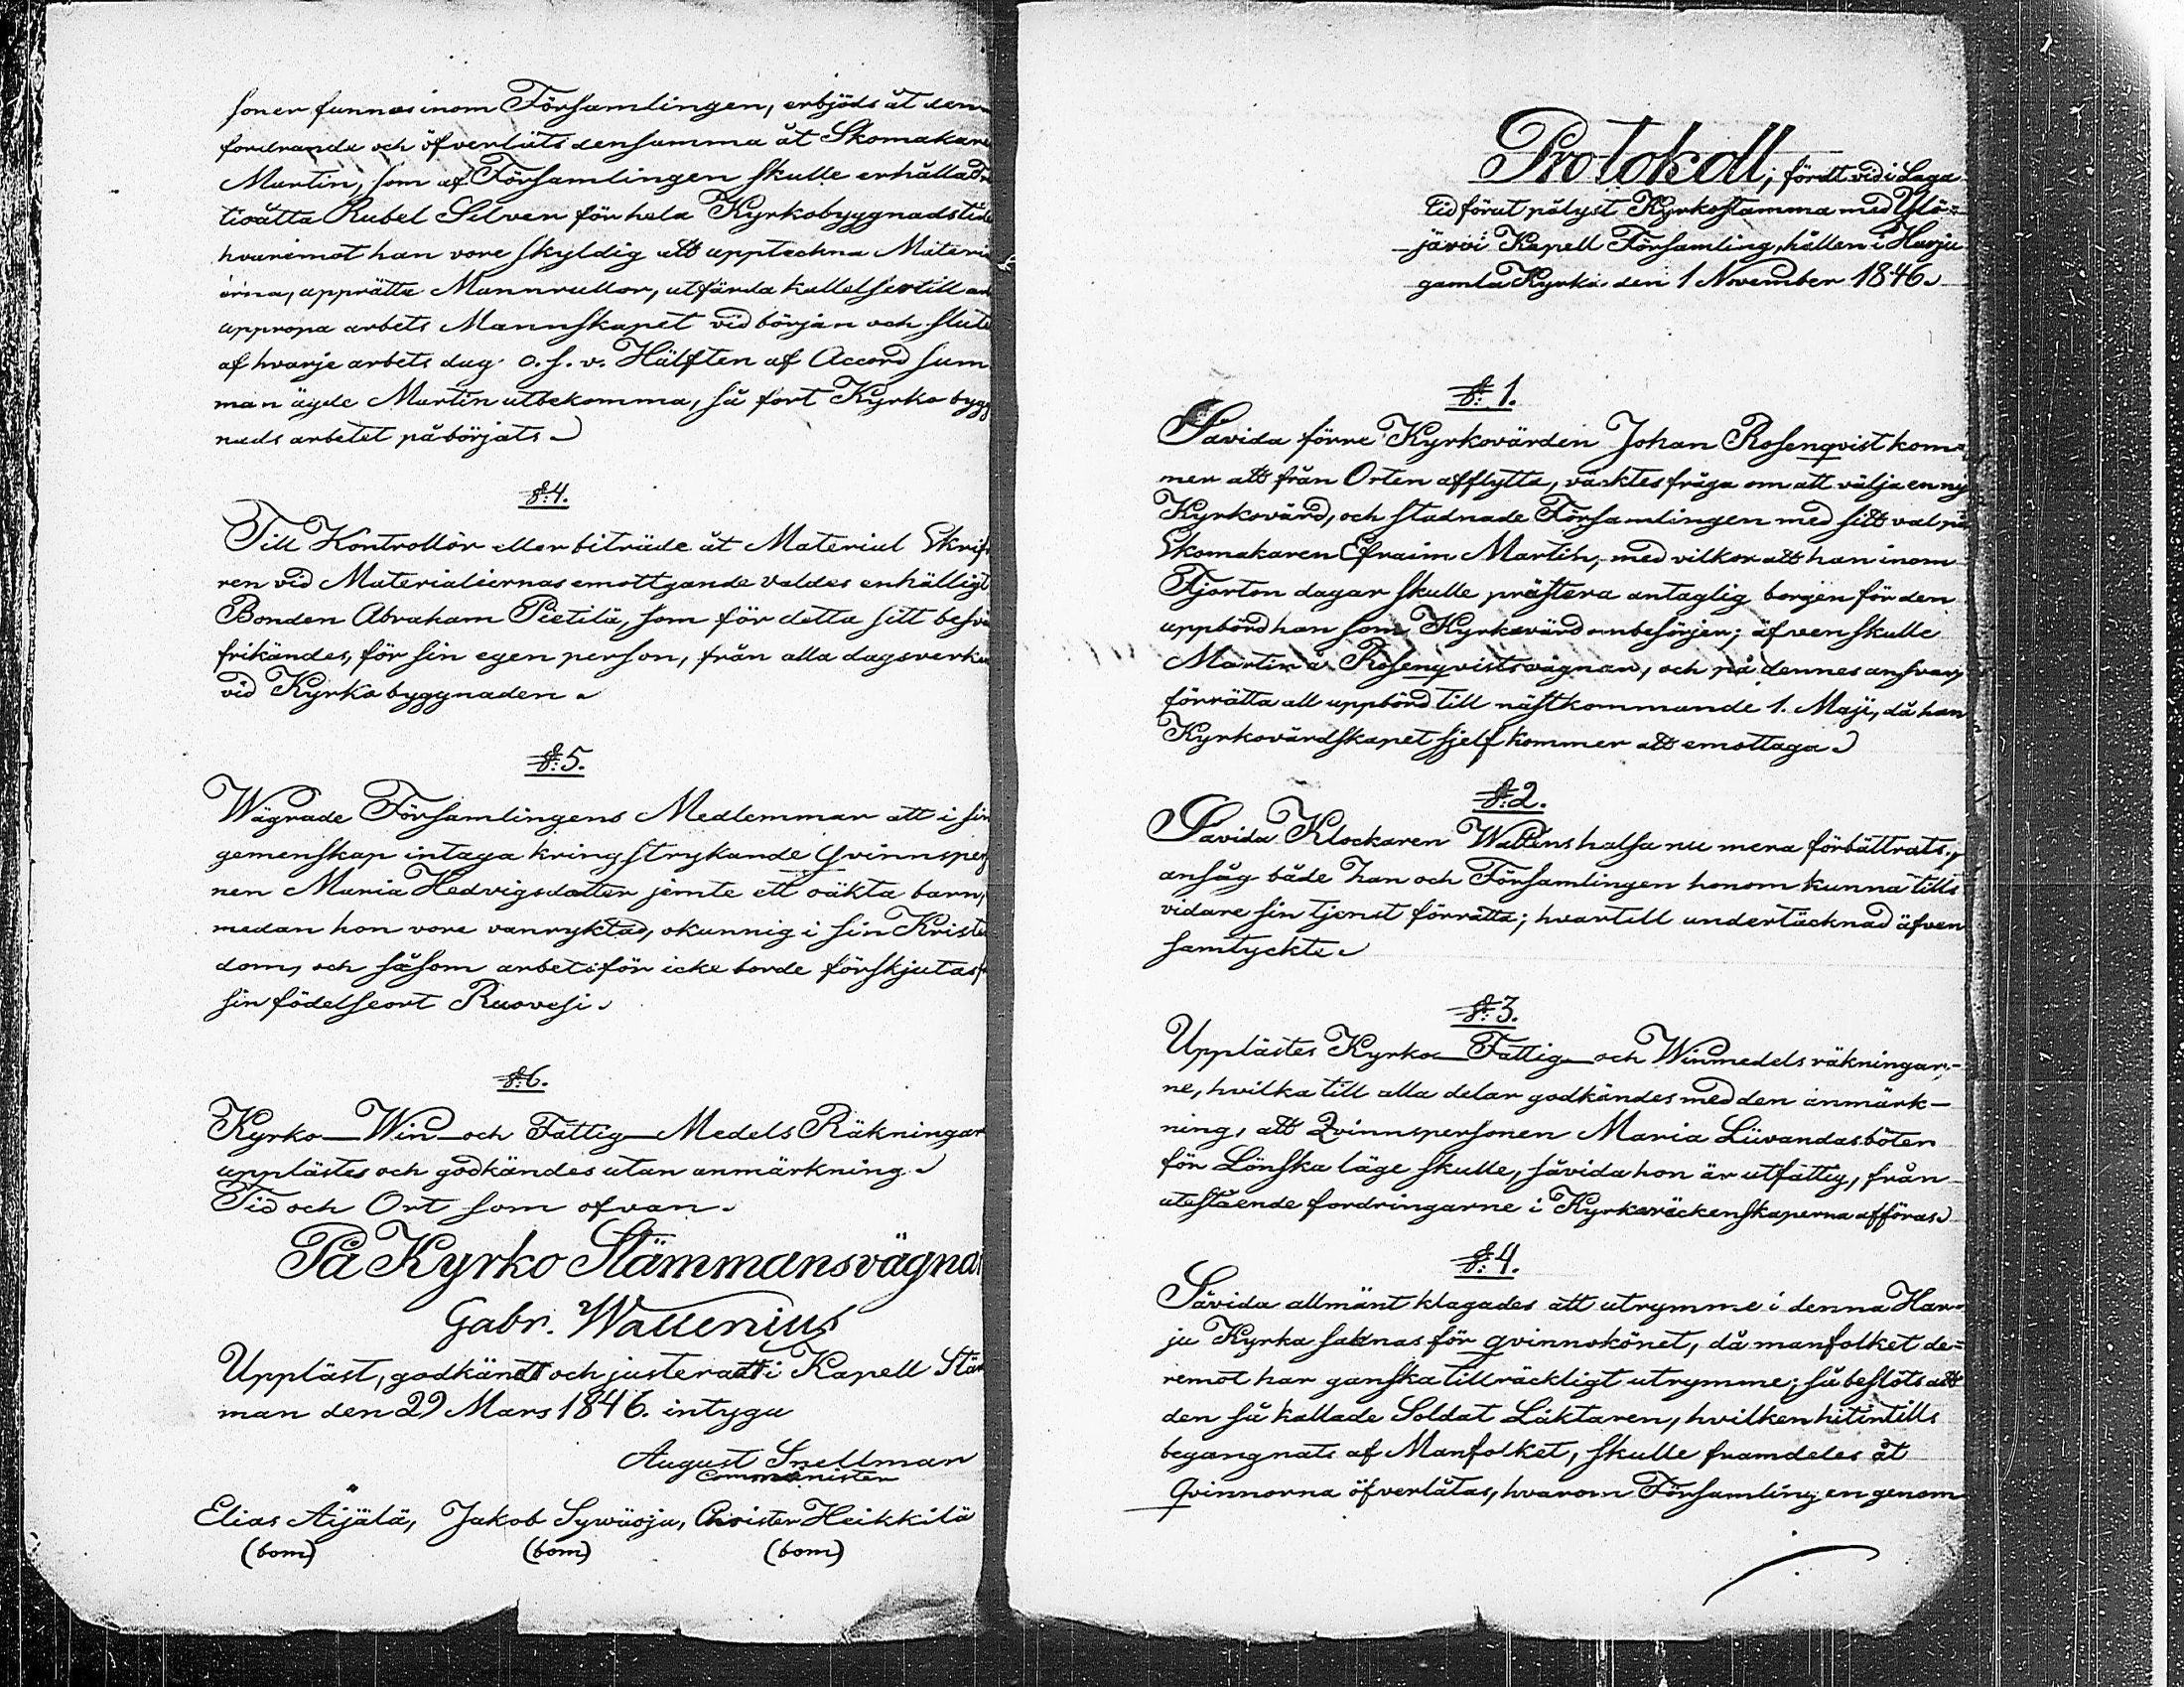 soner funnos inom Församlingen, erbjöds åt den
fordrande och öfverläts densamma åt Skomakare
Martin, som af Församlingen skulle erhålla
tioåtta Rubel Silver för hela Kyrkobyggnadstide
hvaremot han vore skyldig att uppteckna Materi
erna, upprätta Mannrullor, utfärda kallelser till
uppropa arbets Mannskapet vid början och slute
af hvarje arbets dag o.s.v. Hälften af Accord sum
man ägde Martin utbekomma, så fort Kyrko bygg
nads arbetet påbörjats.
§:4.
Till Kontrollör eller biträde åt Material Skrif
ren vid Materialiernas emottgande valdes enhälligt
Bonden Abraham Pietilä, som för detta sitt besvä
frikändes, för sin egen person, från alla dagsverk
vid Kyrko byggnaden.
§:5.
Wägrade Församlingens Medlemmar att i sin
gemenskap intaga kringstrykande Qvinnsper
nen Maria Hedvigsdotter jemte ett oäkta barn,
medan hon vore vanryktad, okunnig i sin Kriste
dom, och såsom arbetsför icke borde förskjutas
sin födelseort Ruovesi.
§:6.
Kyrko-Win-och Fattig-Medels Räkningar
upplästes och godkändes utan anmärkning.
Tid och Ort som ofvan.
På Kyrko Stämmansvägna
Gabr. Wallenius
Uppläst, godkändt och justeradt i Kapell Stäm
man den 29 Mars 1846. intyga
August Snellman
Comminister
Elias Äijälä, Jakob Sywäoja, Christer Heikkilä
(bom) (bom) (bom)
Protokoll, fördt vid i Laga
tid förut pålyst Kyrkostämma med Ylö=
järvi Kapell Församling, hållen i Harju
gamla Kyrka den 1 November 1846.
§:1.
Såvida förre Kyrkovärden Johan Rosenqvist kom=
mer att från Orten afflytta, väcktes fråga om att välja en ny
Kyrkovärd, och stadnade Församlingen med sitt val på
Skomakaren Efraim Martin, med vilkor att han inom
Fjorton dagar skulle prästera antaglig borgen för den
uppbörd han som Kyrkovärd ombesörjer; äfven skulle
Martin å Rosenqvists vägnar, och på dennes ansvar,
förrätta all uppbörd till nästkommande 1. Maji, då han
Kyrkovärdskapet sjelf kommer att emottaga.
§:2.
Såvida Klockaren Wallens halsa nu mera förbättrats,
ansåg både han och Församlingen honom kunna tills
vidare sin tjenst förrätta; hvartill undertäcknad äfven
samtyckte.
§:3.
Upplästes Kyrko-Fattig-och Winmedels räkningar-
ne, hvilka till alla delar godkändes med den anmärk-
ning, att Qvinnspersonen Maria Liivandas böter
för Lönska läge skulle, såvida hon är utfattig, från
utestående fordringarne i Kyrkoräckenskaperna afföras.
§:4.
Såvida allmänt klagades att utrymme i denna Har-
ju Kyrka saknas för qvinnokönet, då manfolket de=
remot har ganska tillräckligt utrymme; så beslöts att
den så kallade Soldat Läktaren, hvilken hitintills
begangnats af Manfolket, skulle framdeles åt
Qvinnorna öfverlåtas, hvarom Församlingen genom